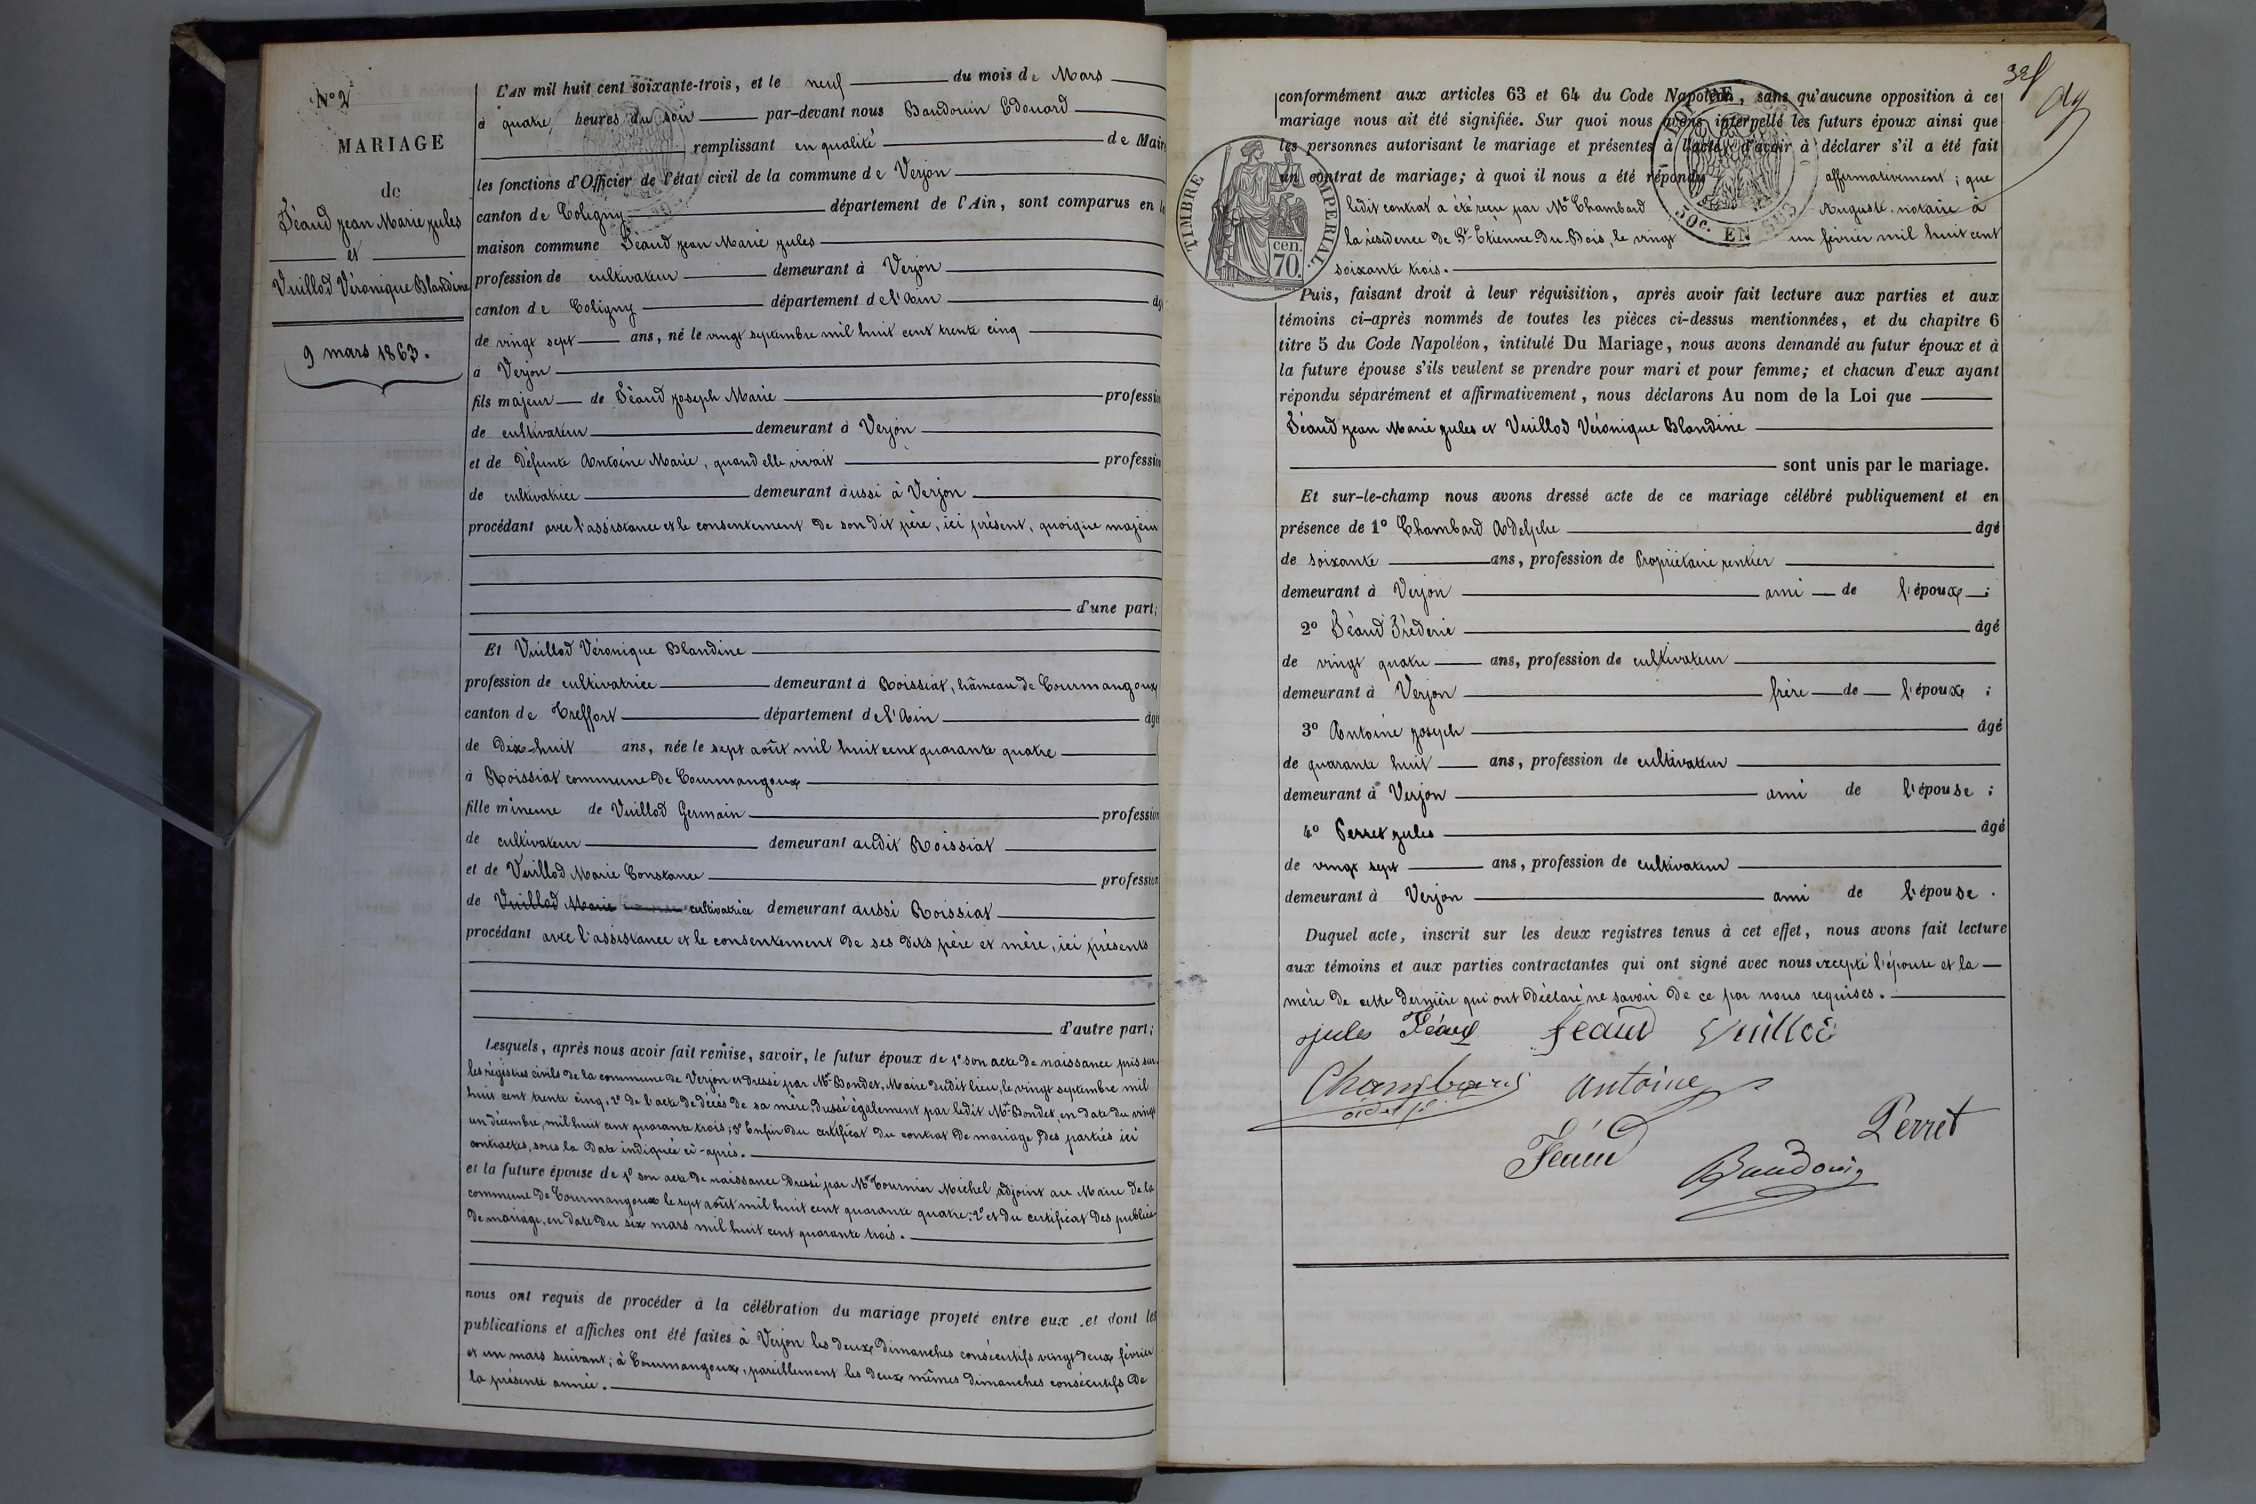 N° 2
MARIAGE
de
Féaud Jean Marie Jules
et
Vuillod Véronique Blandine
9 mars 1863.
L'AN mil huit cent soixante-trois, et le neuf du mois de Mars
à quatre heures du soir par-devant nous Baudouin Edouard
remplissant en qualité de Maire
les fonctions d'Officier de l'état civil de la commune de Verjon
canton de Coligny département de l'Ain, sont comparus en la
maison commune Féaud Jean Marie Jules
profession de cultivateur demeurant à Verjon
canton de Coligny département de l'Ain âgé
de vingt sept ans, né le vingt septembre mil huit cent trente cinq
à Verjon
fils majeur de Féaud Joseph Marie profession
de cultivateur demeurant à Verjon
et de défunte Antoine Marie, quand elle vivait profession
de cultivatrice demeurant aussi à Verjon
procédant avec l'assistance et le consentement de son dit père, ici présent, quoique majeur
d'une part;
Et Vuillod Véronique Blandine
profession de cultivatrice demeurant à Roissiat, hâmeau de Courmangoux
canton de Treffort département de l'Ain âgé
de dix-huit ans, née le sept août mil huit cent quarante quatre
à Roissiat commune de Courmangoux
fille mineure de Vuillod Germain profession
de cultivateur demeurant audit Roissiat
et de Vuillod Marie Constance profession
de Vuillod Marie cultivatrice demeurant aussi Roissiat
procédant avec l'assistance et le consentement de ses dits père et mère, ici présents
d'autre part;
Lesquels, après nous avoir fait remise, savoir, le futur époux de 1° son acte de naissance pris sur
les régistres civils de la commune de Verjon et dressé par Mr Bondet, Maire dudit lieu, le vingt septembre mil
huit cent trente cinq; 2° de l'acte de décès de sa mère, dressé également par ledit Mr Bondet, en date du vingt
un décembre, mil huit cent quarante trois; 3° Enfin du certificat du contrat de mariage, des parties ici
contractés, sous la date indiquée ci-après.
et la future épouse de 1° son acte de naissance dressé par Mr Tournier Michel adjoint au Maire de la
commune de Courmangoux le sept août mil huit cent quarante quatre; 2° et du certificat des publica
de mariage, en date du six mars mil huit cent quarante trois.
nous ont requis de procéder à la célébration du mariage projeté entre eux et dont les
publications et affiches ont été faites à Verjon les deux dimanches consécutifs vingt deux février
et un mars suivant; à Courmangoux, pareillement les deux mêmes dimanches consécutifs de
la présente année.
conformément aux articles 63 et 64 du Code Napoléon, sans qu'aucune opposition à ce
mariage nous ait été signifiée. Sur quoi nous avons interpellé les futurs époux ainsi que
les personnes autorisant le mariage et présentes à l'acte, d'avoir à déclarer s'il a été fait
un contrat de mariage; à quoi il nous a été répondu affermativement; que
ledit contrat a été reçu par Me Chambard Auguste notaire à
la résidence de St Etienne-du-Bois, le vingt un février mil huit cent
soixante trois.
TIMBRE IMPERIAL.
cen.
70.
50c. EN SUS
Puis, faisant droit à leur réquisition, après avoir fait lecture aux parties et aux
témoins ci-après nommés de toutes les pièces ci-dessus mentionnées, et du chapitre 6
titre 5 du Code Napoléon, intitulé Du Mariage, nous avons demandé au futur époux et à
la future épouse s'ils veulent se prendre pour mari et pour femme; et chacun d'eux ayant
répondu séparément et affirmativement, nous déclarons Au nom de la Loi que
Féaud Jean Marie Jules et Vuillod Véronique Blandine
sont unis par le mariage.
Et sur-le-champ nous avons dressé acte de ce mariage célébré publiquement et en
présence de 1° Chambard Adelphe âgé
de soixante ans, profession de Propriétaire rentier
demeurant à Verjon ami de l'époux;
2° Féaud Fréderic âgé
de vingt quatre ans, profession de cultivateur
demeurant à Verjon frère de l'époux;
3° Antoine Joseph âgé
de quarante huit ans, profession de cultivateur
demeurant à Verjon ami de l'épouse;
4° Perret Jules âgé
de vingt sept ans, profession de cultivateur
demeurant à Verjon ami de l'épouse.
Duquel acte, inscrit sur les deux registres tenus à cet effet, nous avons fait lecture
aux témoins et aux parties contractantes qui ont signé avec nous excepté l'épouse et la
mère de cette dernière qui ont déclaré ne savoir de ce par nous requises.
Jules Féaud feaud Vuillod
Chambard antoine
Féaud Perret
Baudouin